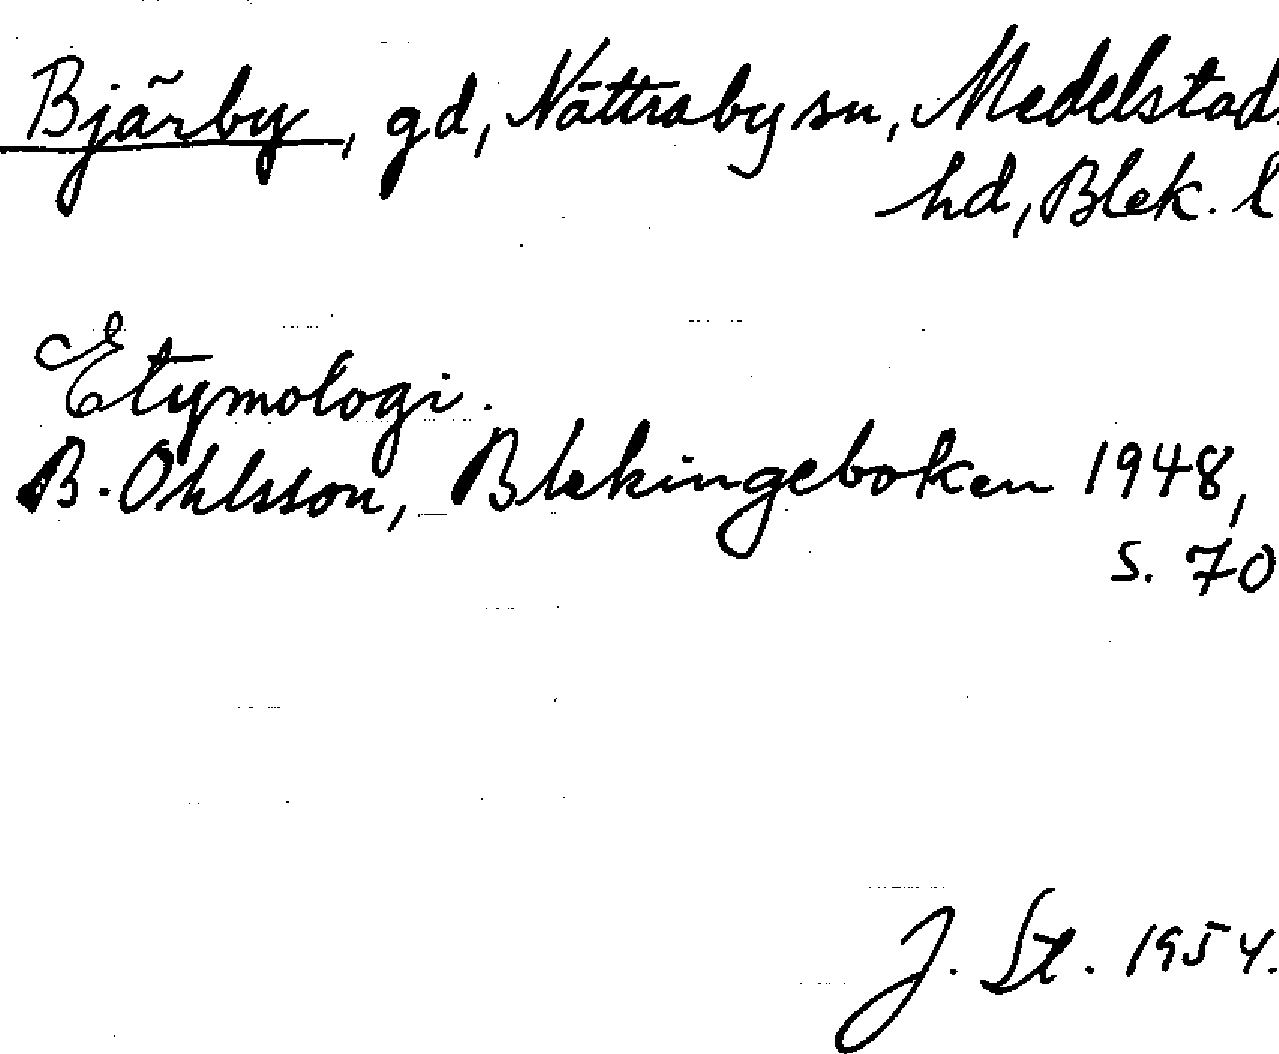 Bjärby, gd, Nättraby sn, Medelstad
hd, Blek. l
Etymologi.
B. Ohlsson, Blekingeboken 1948,
s. 70
J. St. 1954.